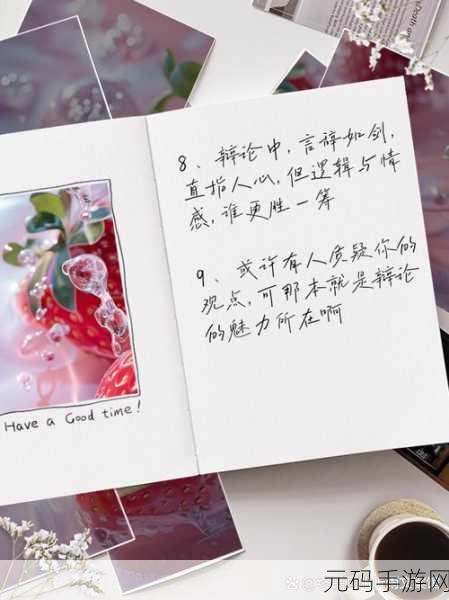 8、辩论中，言辞如剑，
直指人心，但逻辑与情
感，谁更胜一筹
9、或许有人质疑你的
观点，可那本就是辩论
的魅力所在啊
Have a Good time!
元码手游网